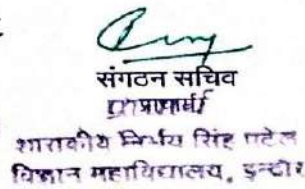 संगठन सचिव
शासकीय निर्भय सिंह पटेल
विज्ञान महाविद्यालय, इन्दौर